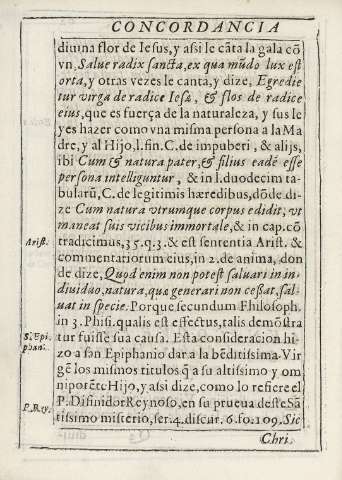 CONCORDANCIA
diuina flor de Iesus, y assi le cãta la gala cõ
vn, Salue radix sancta, ex qua mũdo lux est
orta, y otras vezes le canta, y dize, Egredie
tur virga de radice Iesæ, & flos de radice
eius, que es fuerça de la naturaleza, y sus le
yes hazer como vna misma persona a la Ma
dre, y al Hijo, l. fin. C. de impuberi, & alijs,
ibi Cum & natura pater, & filius eadẽ esse
persona intelliguntur, & in l. duodecim ta-
bularũ, C. de legitimis hæredibus, dõde di-
ze Cum natura vtrumque corpus edidit, vt
maneat suis vicibus immortale, & in cap. cõ
tradicimus, 35. q. 3. & est sententia Arist. &
Arist.
commentariorum eius, in 2. de anima, don
de dize, Quod enim non potest saluari in in-
diuiduo, natura, quæ generari non cessat, sal-
uat in specie. Porque secundum Fhilosoph.
in 3. Phisi. qualis est effectus, talis demõstra
S. Epi-
phani.
tur fuisse sua causa. Esta consideracion hi-
zo a san Epiphanio dar a la bẽditissima Vir
gẽ los mismos titulos q̃ a su altisimo y om
nipotẽte Hijo, y assi dize, como lo refiere el
P. Rey.
P. Difinidor Reynoso, en su prueua deste Sã
tissimo misterio, ser. 4. discur. 6. fo. 109. Sic
Chri.